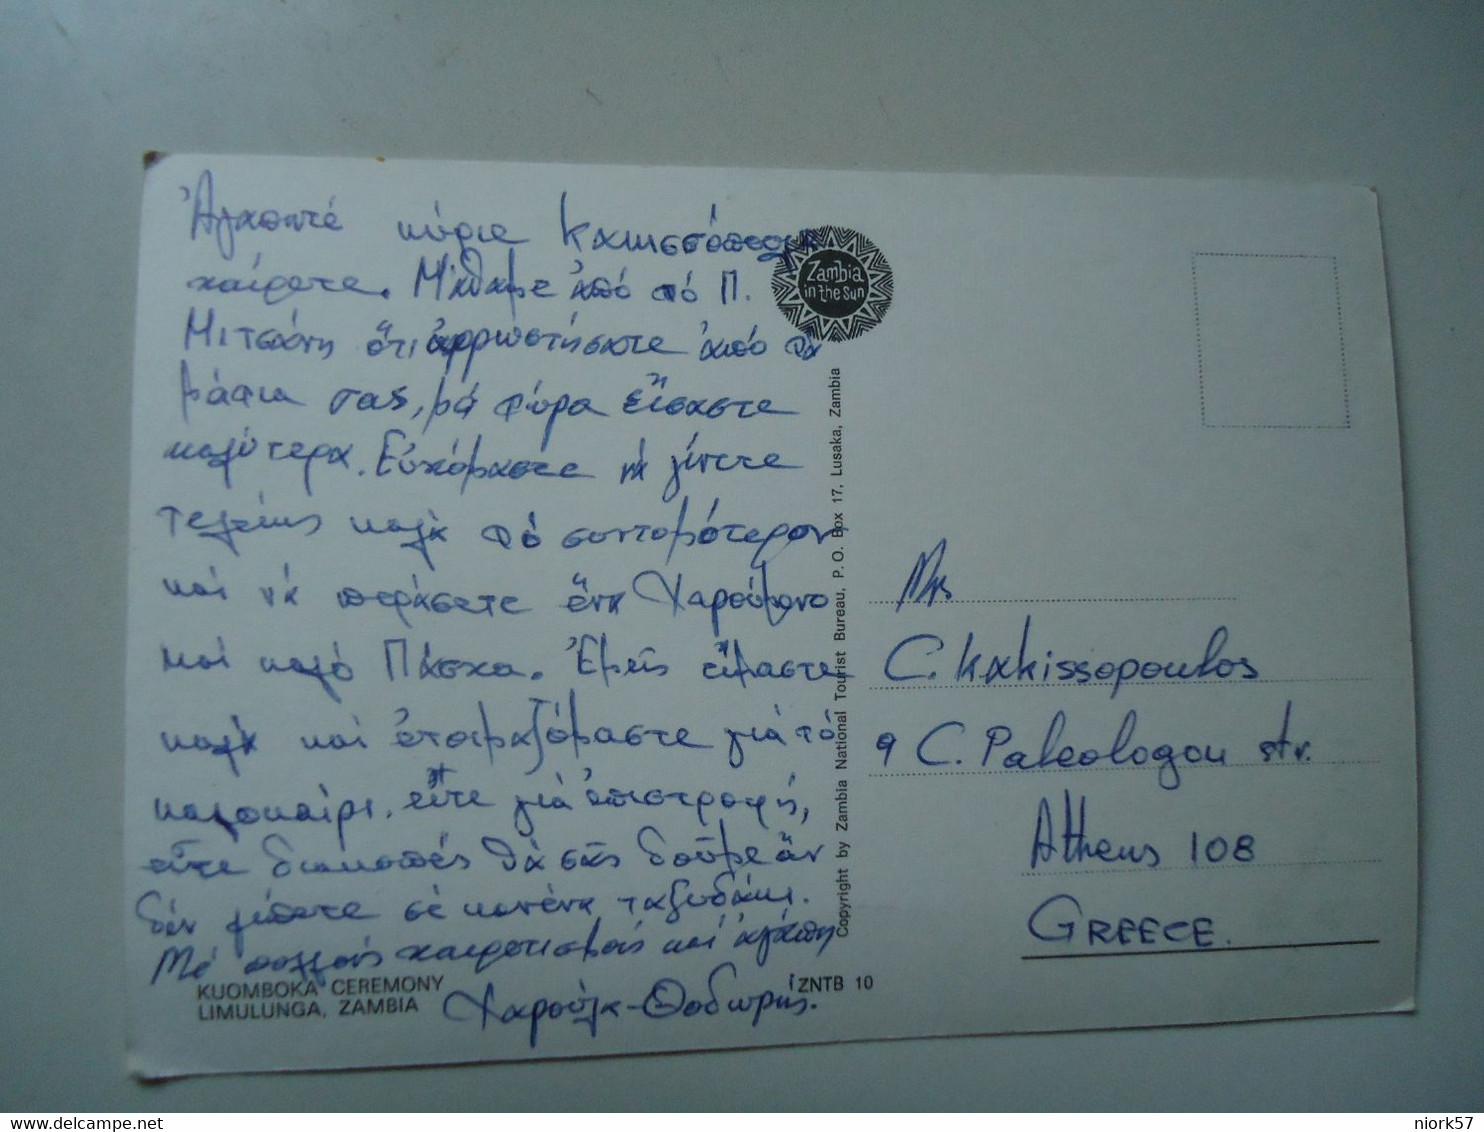 Ἀγαπητέ κύριε Κακισσόπουλε
χαίρετε. Μάθαμε ἀπό τό Π.
Μιτσάνη ὅτι ἀρρωστήσατε ἀπό τά
μάτια σας, μά τώρα εἴσαστε
καλύτερα. Εὐχόμαστε νά γίνετε
τελείως καλά τό συντομότερον
καί νά περάσετε ἕνα χαρούμενο
καί καλό Πάσχα. Ἐμεῖς εἴμαστε
καλά καί ἑτοιμαζόμαστε γιά τό
καλοκαίρι. εἴτε γιά ἐπιστροφή,
εἴτε διακοπές θά σᾶς δοῦμε ἄν
δέν λείπετε σέ κανένα ταξιδάκι.
Μέ πολλούς χαιρετισμούς καί ἀγάπη
Χαρούλα-Θοδωρής.
KUOMBOKA CEREMONY
LIMULUNGA, ZAMBIA
Zambia
in the Sun
Copyright by Zambia National Tourist Bureau, P. O. Box 17, Lusaka, Zambia
ZNTB 10
C. Kakissopoulos
9 C. Paleologou str.
Athens 108
GREECE.
niork57